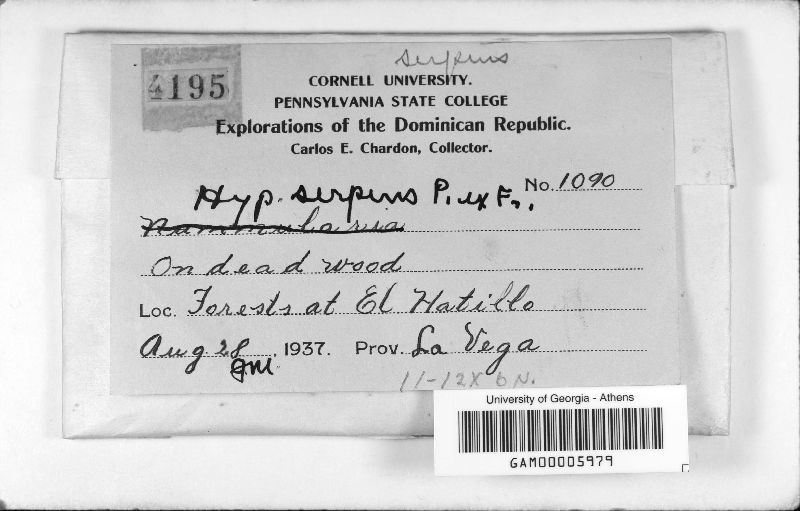 serpens
4195
CORNELL UNIVERSITY.
PENNSYLVANIA STATE COLLEGE
Explorations of the Dominican Republic.
Carlos E. Chardon, Collector.
No. 1090
Hyp. serpens P. ex Fr.
Nummularia
On dead wood
Loc. Forests at El Hatillo
Aug 28, 1937. Prov. La Vega
JHM
11-12 X 6 N.
University of Georgia - Athens
GAM00005979